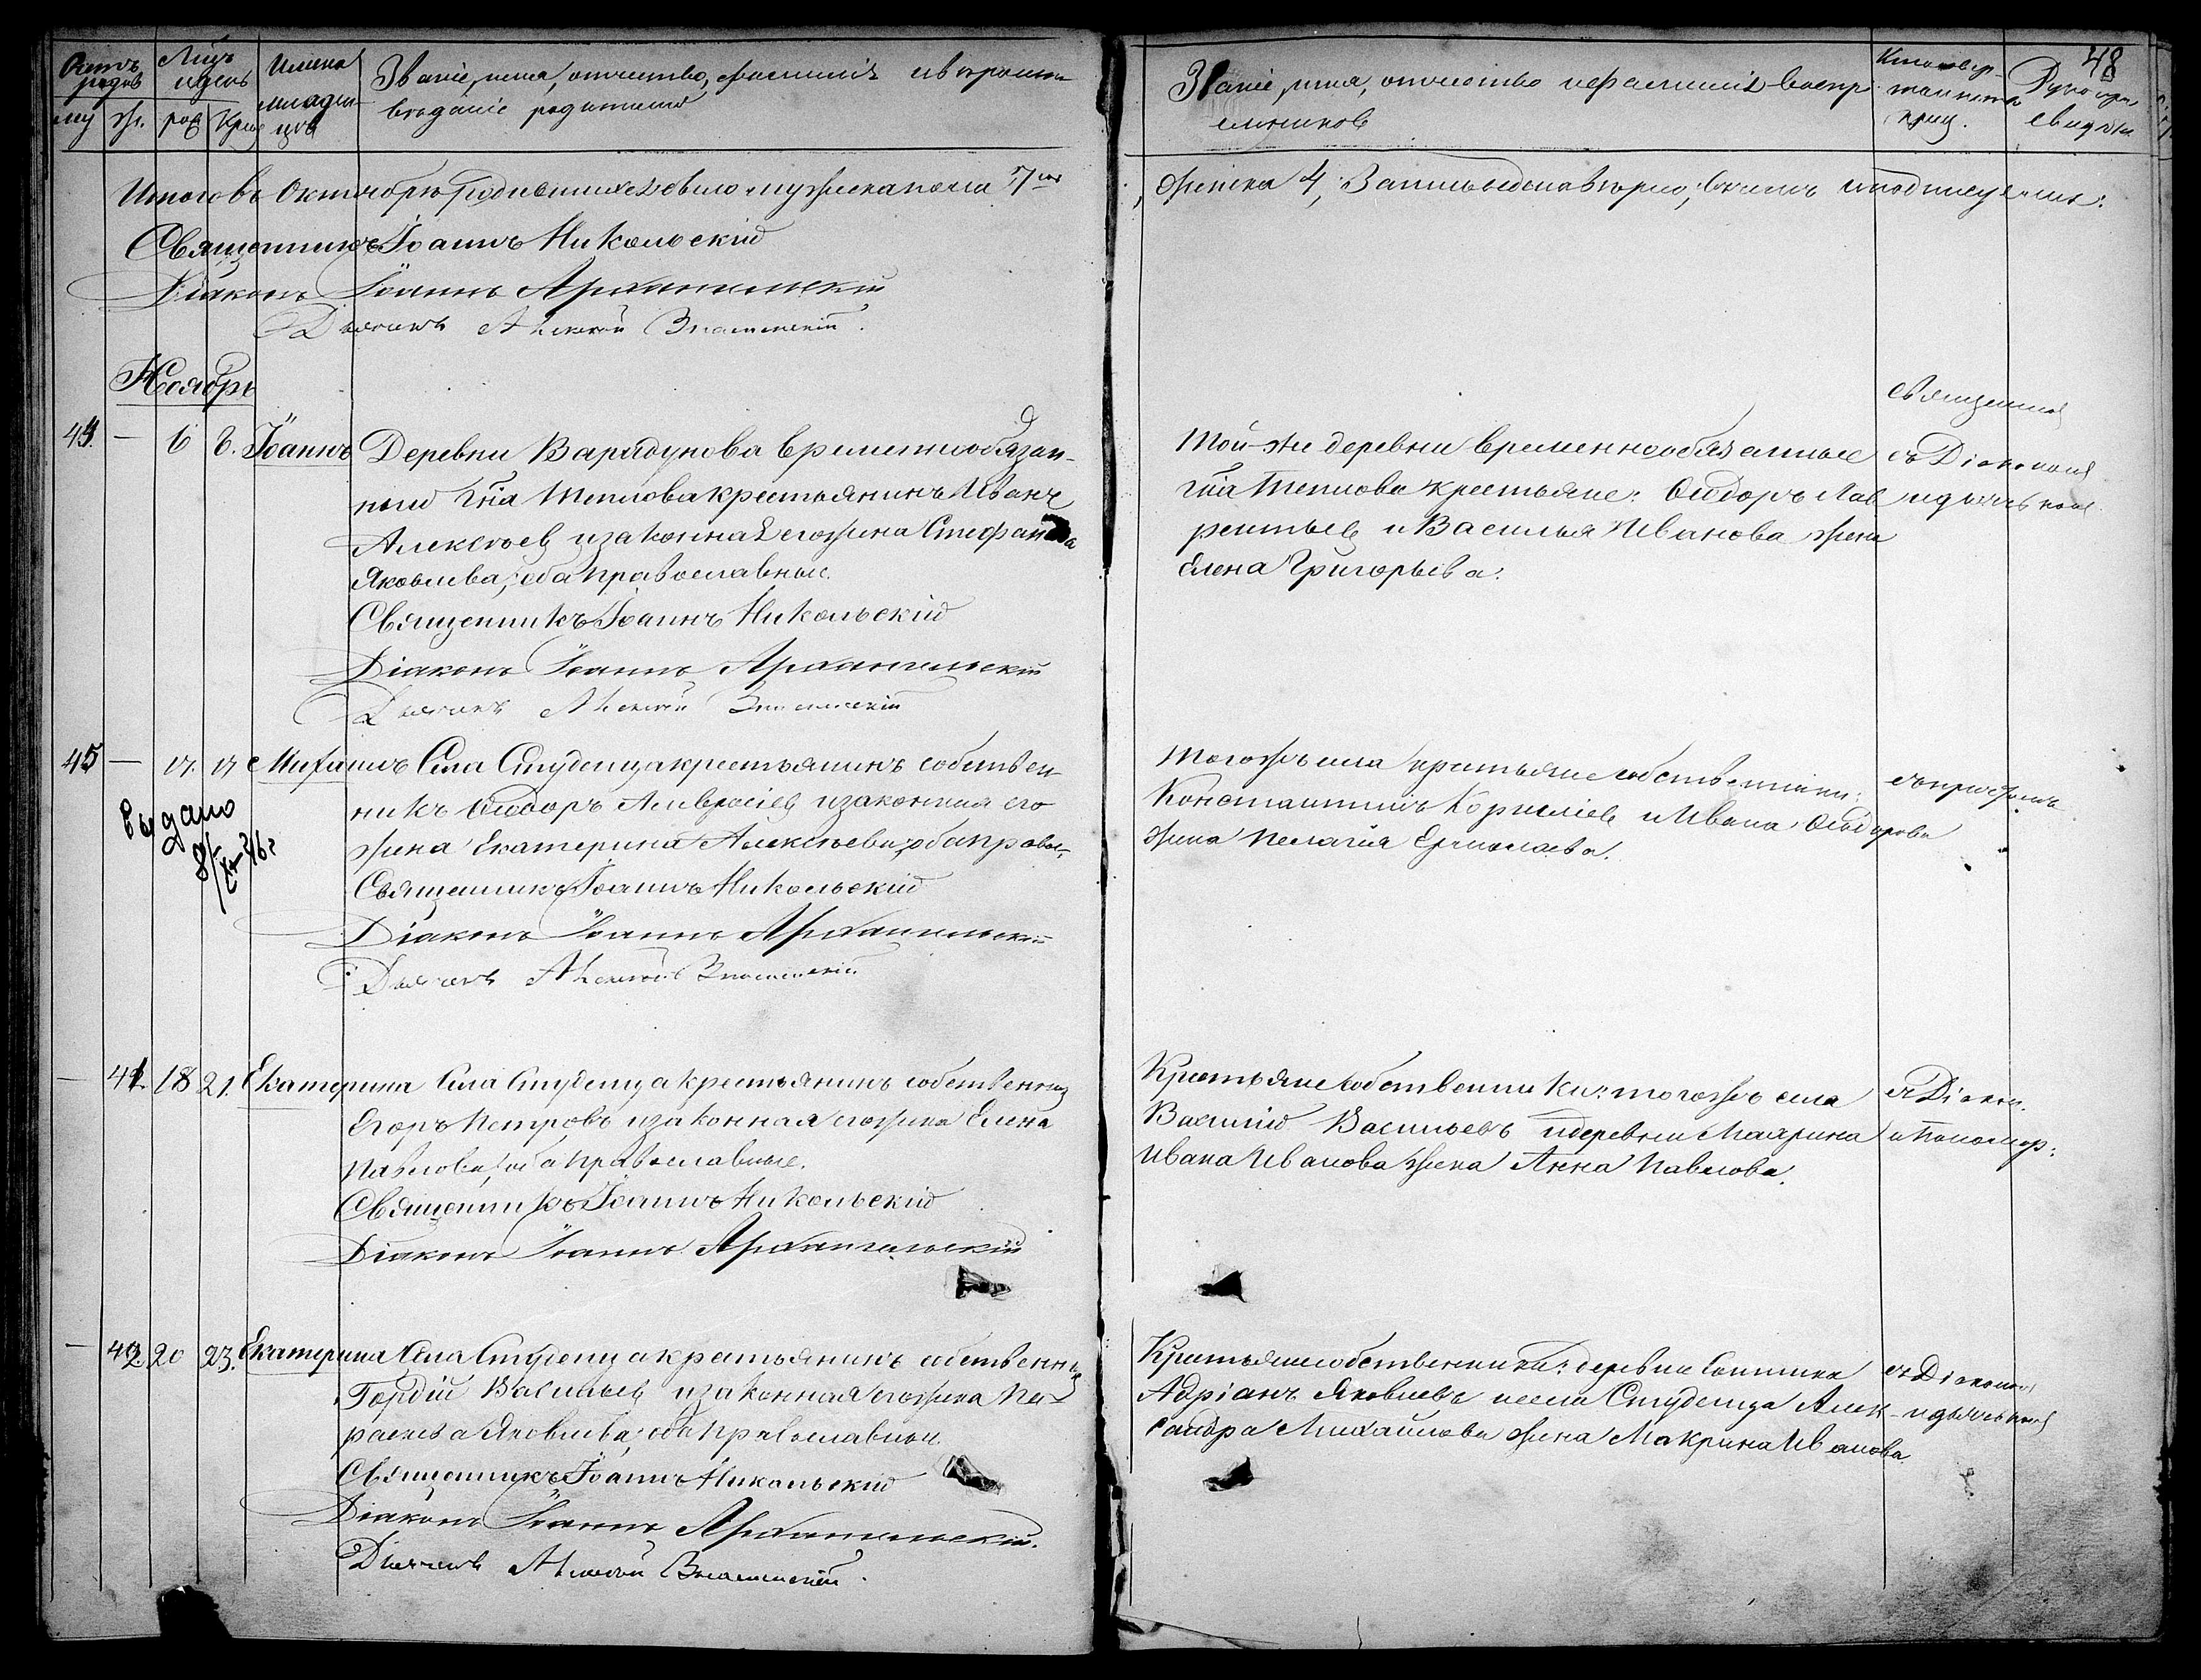 Счетъ родив
Мцъ и день
Имена младен-
цовъ
Званіе, имя, отчество, фамилія и вѣроиспо-
вѣданіе родителей
му ж. рож Крещ
Итого въ Октябрѣ родившихся было мужеска пола 7
Священникъ Іоаннъ Никольскій
Діаконъ Іоаннъ Архангельскій
Дьячокъ Алексѣй Знаменскій.
Ноябрь
44. — 6 8. Іоаннъ Деревни временнообязан-
ный Гна Теплова крестьянинъ Иванъ
Алексѣевъ и законная его жена Стефанида
Яковлева, оба православные.
Священникъ Іоаннъ Никольскій
Діаконъ Іоаннъ Архангельскій
Дьячокъ Алексѣй Знаменскій
45 — 17. 17 Села Студенца крестьянинъ собствен-
никъ Сидоръ и законная его
жена Екатерина Алексѣева, оба правос-
Священникъ Іоаннъ Никольскій
Діаконъ Іоаннъ Архангельскій
Дьячокъ Алексѣй Знаменскій
Выдано
— 41. 18 21. Екатерина Села Студенца крестьянинъ собственник
Егоръ Петровъ и законная его жена Елена
Павлова, оба православные.
Священникъ Іоаннъ Никольскій
Діаконъ Іоаннъ Архангельскій
— 42. 20 23. Екатерина Села Студенца крестьянинъ собственник
Гордій Васильевъ и законная его жена Па-
раскева Яковлева, оба православные.
Священникъ Іоаннъ Никольскій
Діаконъ Іоаннъ Архангельскій.
Дьячокъ Алексѣй Знаменскій.
48
Званіе, имя, отчество и фамилія воспр
емниковъ
Кто совер-
таинств
крещ.
Рукопри
свидѣт
, женска 4; въ чемъ и подписуемся:
Той-же деревни временнообязанные
Гна Теплова крестьяне: Сидоръ Лав
рентьевъ и Василья Иванова жена
Елена Григорьева.
Священник
съ Діакономъ
и дьячькомъ
Тогожъ села крестьяне собственники:
Константинъ Корниліев и Ивана Сидорова
жена Пелагія Ермолаева.
съ причтомъ
Крестьяне собственники: тогожъ села
Василій Васильевъ и деревни
Ивана Иванова жена Анна Павлова.
съ Діакон.
и Пономар:
Крестьяне собственники: деревни
Адріанъ Яковлевъ и села Студенца Алек-
сандра Михайлова жена Макрина Иванова
съ Діакономъ
и дьячькомъ